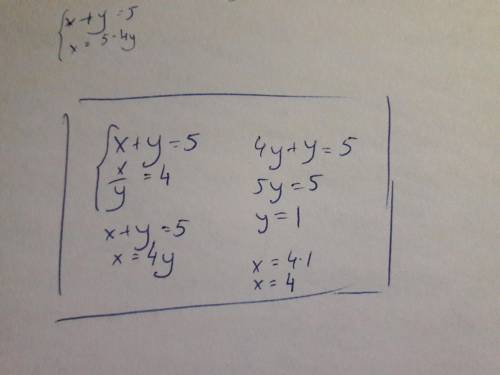 x + y = 5
x = 5 · 4y
x + y = 5
x/y = 4
x + y = 5
x = 4y
4y + y = 5
5y = 5
y = 1
x = 4 · 1
x = 4